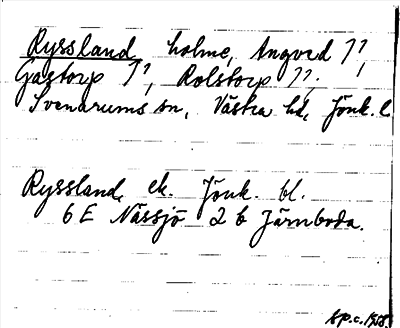 Ryssland, holme, Angerd 1?,
Gastorp 1?, Rolstorp 1?.
Svenarums sn, Västra hd, Jönk. l.
Ryssland, ek. Jönk. bl.
6 E Nässjö 2 b Järnboda.
Sp.c. 1958.